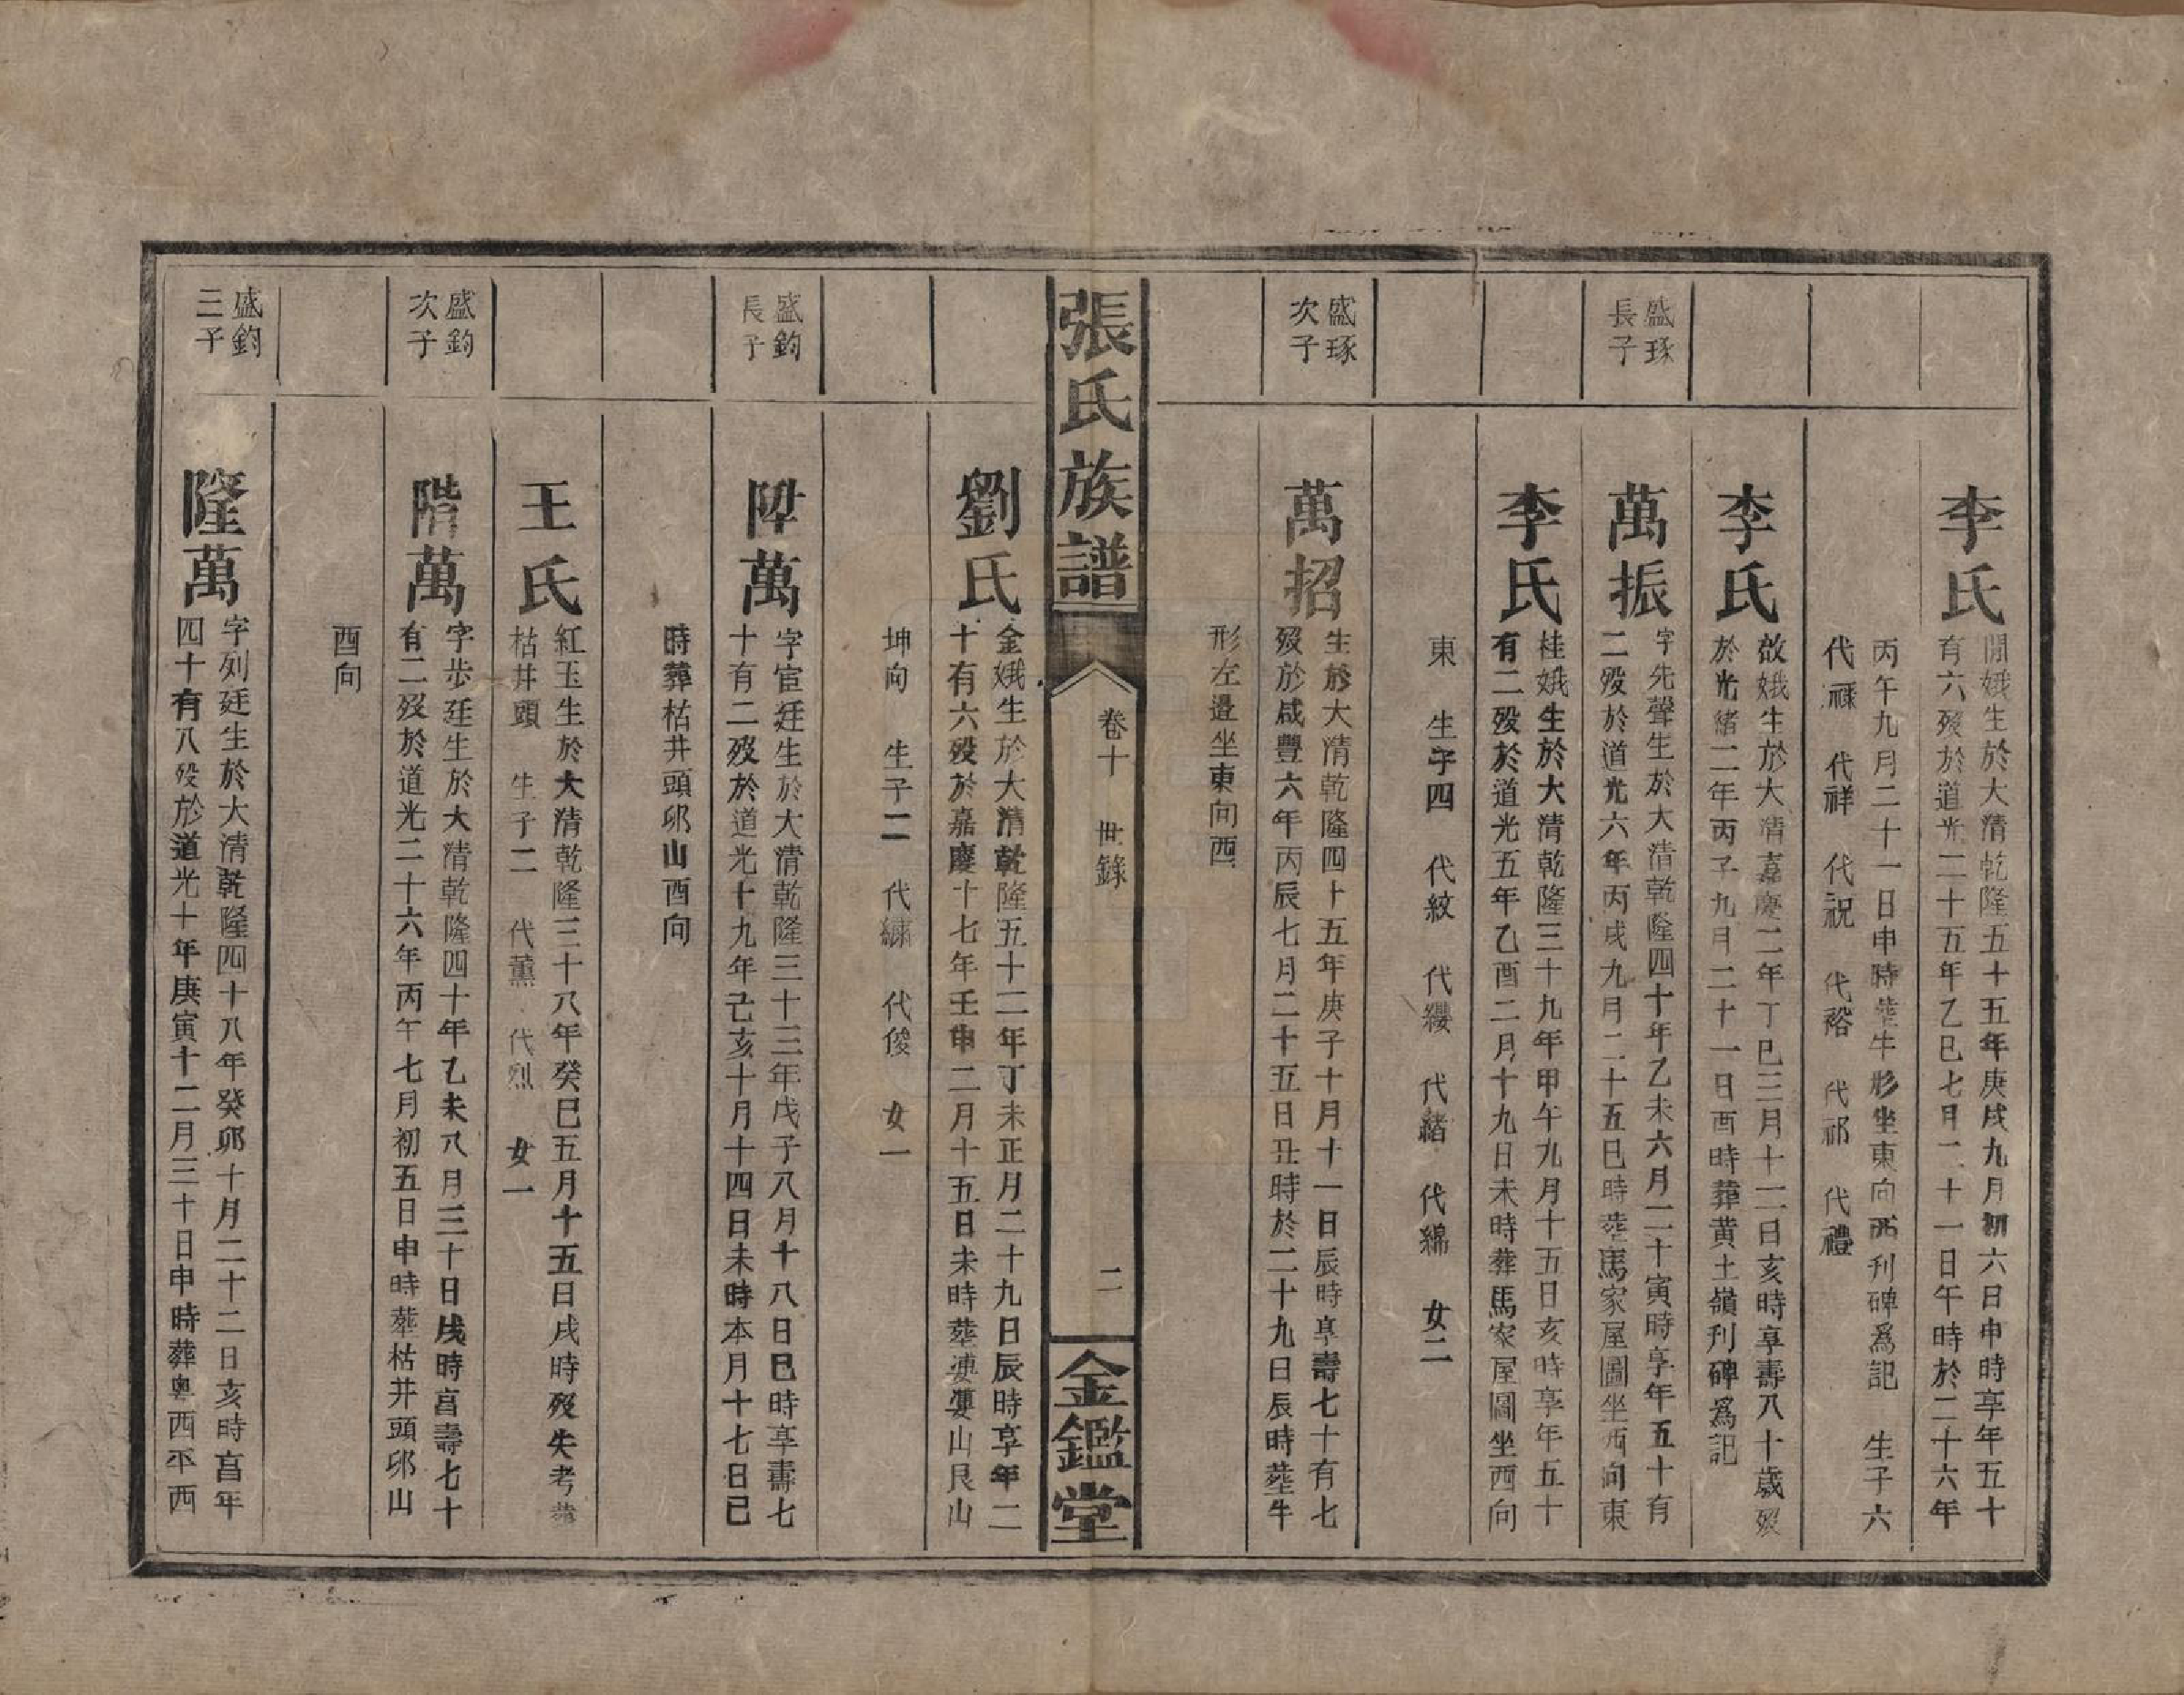 李氏
開娥生於大清乾隆五十五年庚戌九月初六日申時享年五十
有六歿於道光二十五年乙巳七月二十一日午時於二十六年
丙午九月二十一日申時塟牛形坐東向西刋碑爲記 生子六
代祿 代祥 代祝 代裕 代祁 代禮
李氏
啟娥生於大清嘉慶二年丁巳三月十二日亥時享壽八十歲歿
於光緒二年丙子九月二十一日酉時葬黄土嶺刋碑爲記
盛琢
長子
萬振
字先聲生於大清乾隆四十年乙未六月二十寅時享年五十有
二歿於道光六年丙戌九月二十五巳時塟馬家屋圖坐西向東
李氏
桂娥生於大清乾隆三十九年甲午九月十五日亥時享年五十
有二歿於道光五年乙酉二月十九日未時葬馬家屋圖坐西向
東 生子四 代紋 代纓 代緒 代綿 女二
盛琢
次子
萬招
生於大清乾隆四十五年庚子十月十一日辰時享壽七十有七
歿於咸豐六年丙辰七月二十五日丑時於二十九日辰時塟牛
形左邉坐東向西
張氏族譜
卷十 世錄
二
金鑑堂
劉氏
金娥生於大清乾隆五十二年丁未正月二十九日辰時享年二
十有六歿於嘉慶十七年壬申二月十五日未時塟婁山艮山
坤向 生子二 代繡 代俊 女一
盛鈞
長子
陞萬
字宦廷生於大清乾隆三十三年戊子八月十八日巳時享壽七
十有二歿於道光十九年己亥十月十四日未時本月十七日巳
時葬枯井頭卯山酉向
王氏
紅玉生於大清乾隆三十八年癸巳五月十五日戌時歿失考葬
枯井頭 生子二 代薰 代烈 女一
盛鈞
次子
階萬
字步廷生於大清乾隆四十年乙未八月三十日戌時亯壽七十
有二歿於道光二十六年丙午七月初五日申時塟枯井頭卯山
酉向
盛鈞
三子
隆萬
字列廷生於大清乾隆四十八年癸卯十月二十二日亥時亯年
四十有八歿於道光十年庚寅十二月三十日申時葬粤西丕西